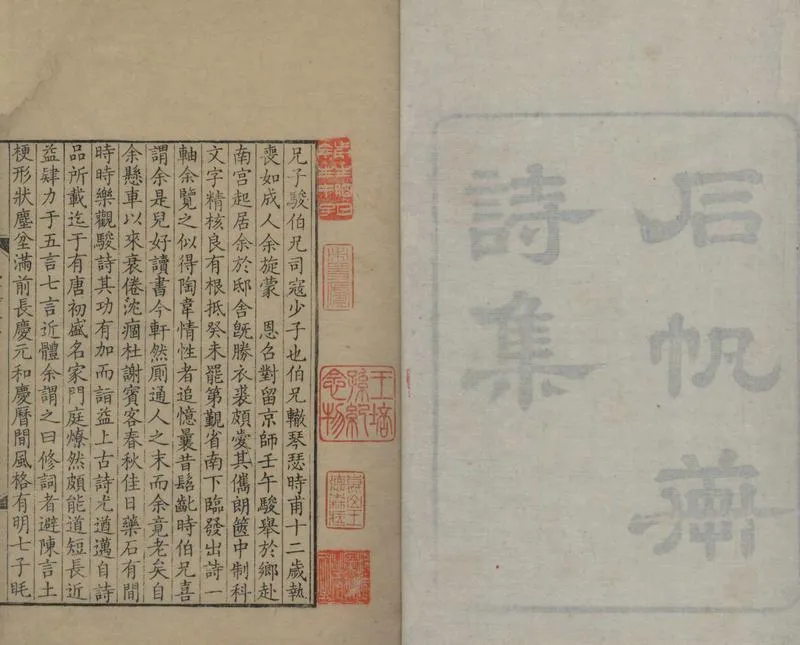 石帆齋
詩集
王培
孫紀
念物
兄子駿伯兄司寇少子也伯兄轍琴瑟時甫十二歲執
喪如成人余旋蒙　恩召對留京師壬午駿舉於鄉赴
南宮起居余於邸舍旣勝衣裘頗愛其儁朗篋中制科
文字精核良有根抵癸未罷第覲省南下臨發出詩一
軸余覽之似得陶韋情性者追憶曩昔髫齔時伯兄喜
謂余是兒好讀書今軒然厠通人之末而余竟老矣自
余懸車以來衰倦沈痼杜謝賓客春秋佳日藥石有間
時時樂觀駿詩其功有加而詣益上古詩尤遒邁自詩
品所載迄于有唐初盛名家門庭燎然頗能道短長近
益肆力于五言七言近體余謂之曰修詞者避陳言土
梗形狀塵坌滿前長慶元和慶曆間風格有明七子眊